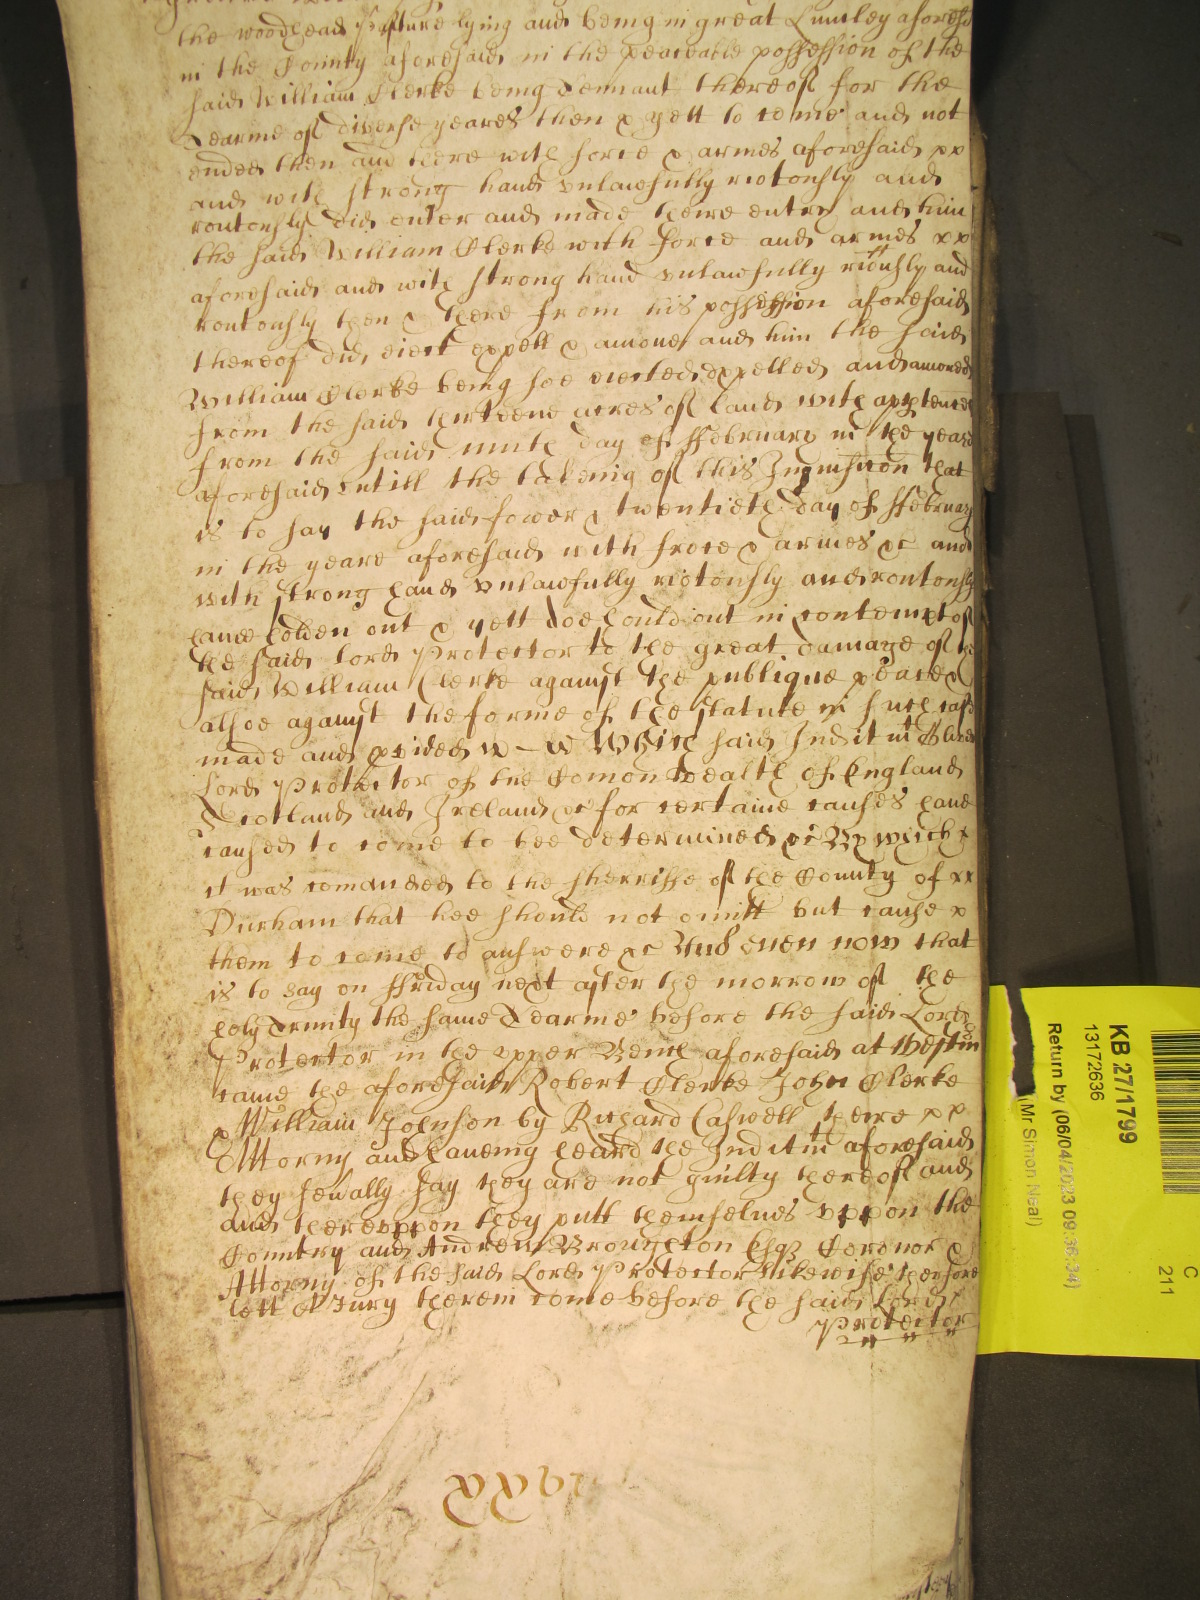 the woodhead Pasture lying and being in great Lumley aforesd
in the County aforesaid in the peaceable possession of the
said William Clerke being Tennant thereof for the
Tearme of diverse yeares then & yett to come and not
ended then and there with force & armes aforesaid xx
and with strong hand vnlawfully riotously and
routously did enter and made theire entry and him
the said William Clerke with force and armes xx
aforesaid and with strong hand vnlawfully riotously and
routously then & there from his possession aforesaid
thereof did eiect expell & amove and him the said
William Clerke being soe eiected expelled and amoved
from the said thirteene acres of land with apptences
from the said ninth day of ffebruary in the yeare
aforesaid vntill the takeing of this Inquisicon that
is to say the said fower & twentieth day of ffebruary
in the yeare aforesaid with froce & armes &c and
with strong hand vnlawfully riotously and routously
have holden out & yett doe hould out in contempt of
the said Lord Protector to the great damage of the
said William Clerke against the publique peace &
alsoe against the forme of the statute in such case
made and pvided Which said Inditmt
Lord Protector of the Comon Wealth of England
Scotland and Ireland &c for certaine causes have
caused to come to bee determined &c By which x
it was comanded to the Sherriffe of the County of xx
Durham that hee should not omitt but cause x
them to come to answere &c And even now that
is to say on ffriday next after the morrow of the
holy Trinity the same Tearme before the said Lord
Protector in the vpper Bench aforesaid at Westmr
came the aforesaid Robert Clerke John Clerke
& William Johnson by Richard Caswell theire xx
Attorny and haveing heard the Inditmt aforesaid
they seũally say they are not guilty thereof and
and therevppon they putt themselves vppon the
Country and Andrew Broughton Esqr Coronor &
Attorny of the said Lord Protector likewise therfore
lett A Jury therein come before the said Lord
Protector
KB 27/1799
13172636
Return by (06/04/2023 09:36:34)
(Mr Simon Neal)
C
211